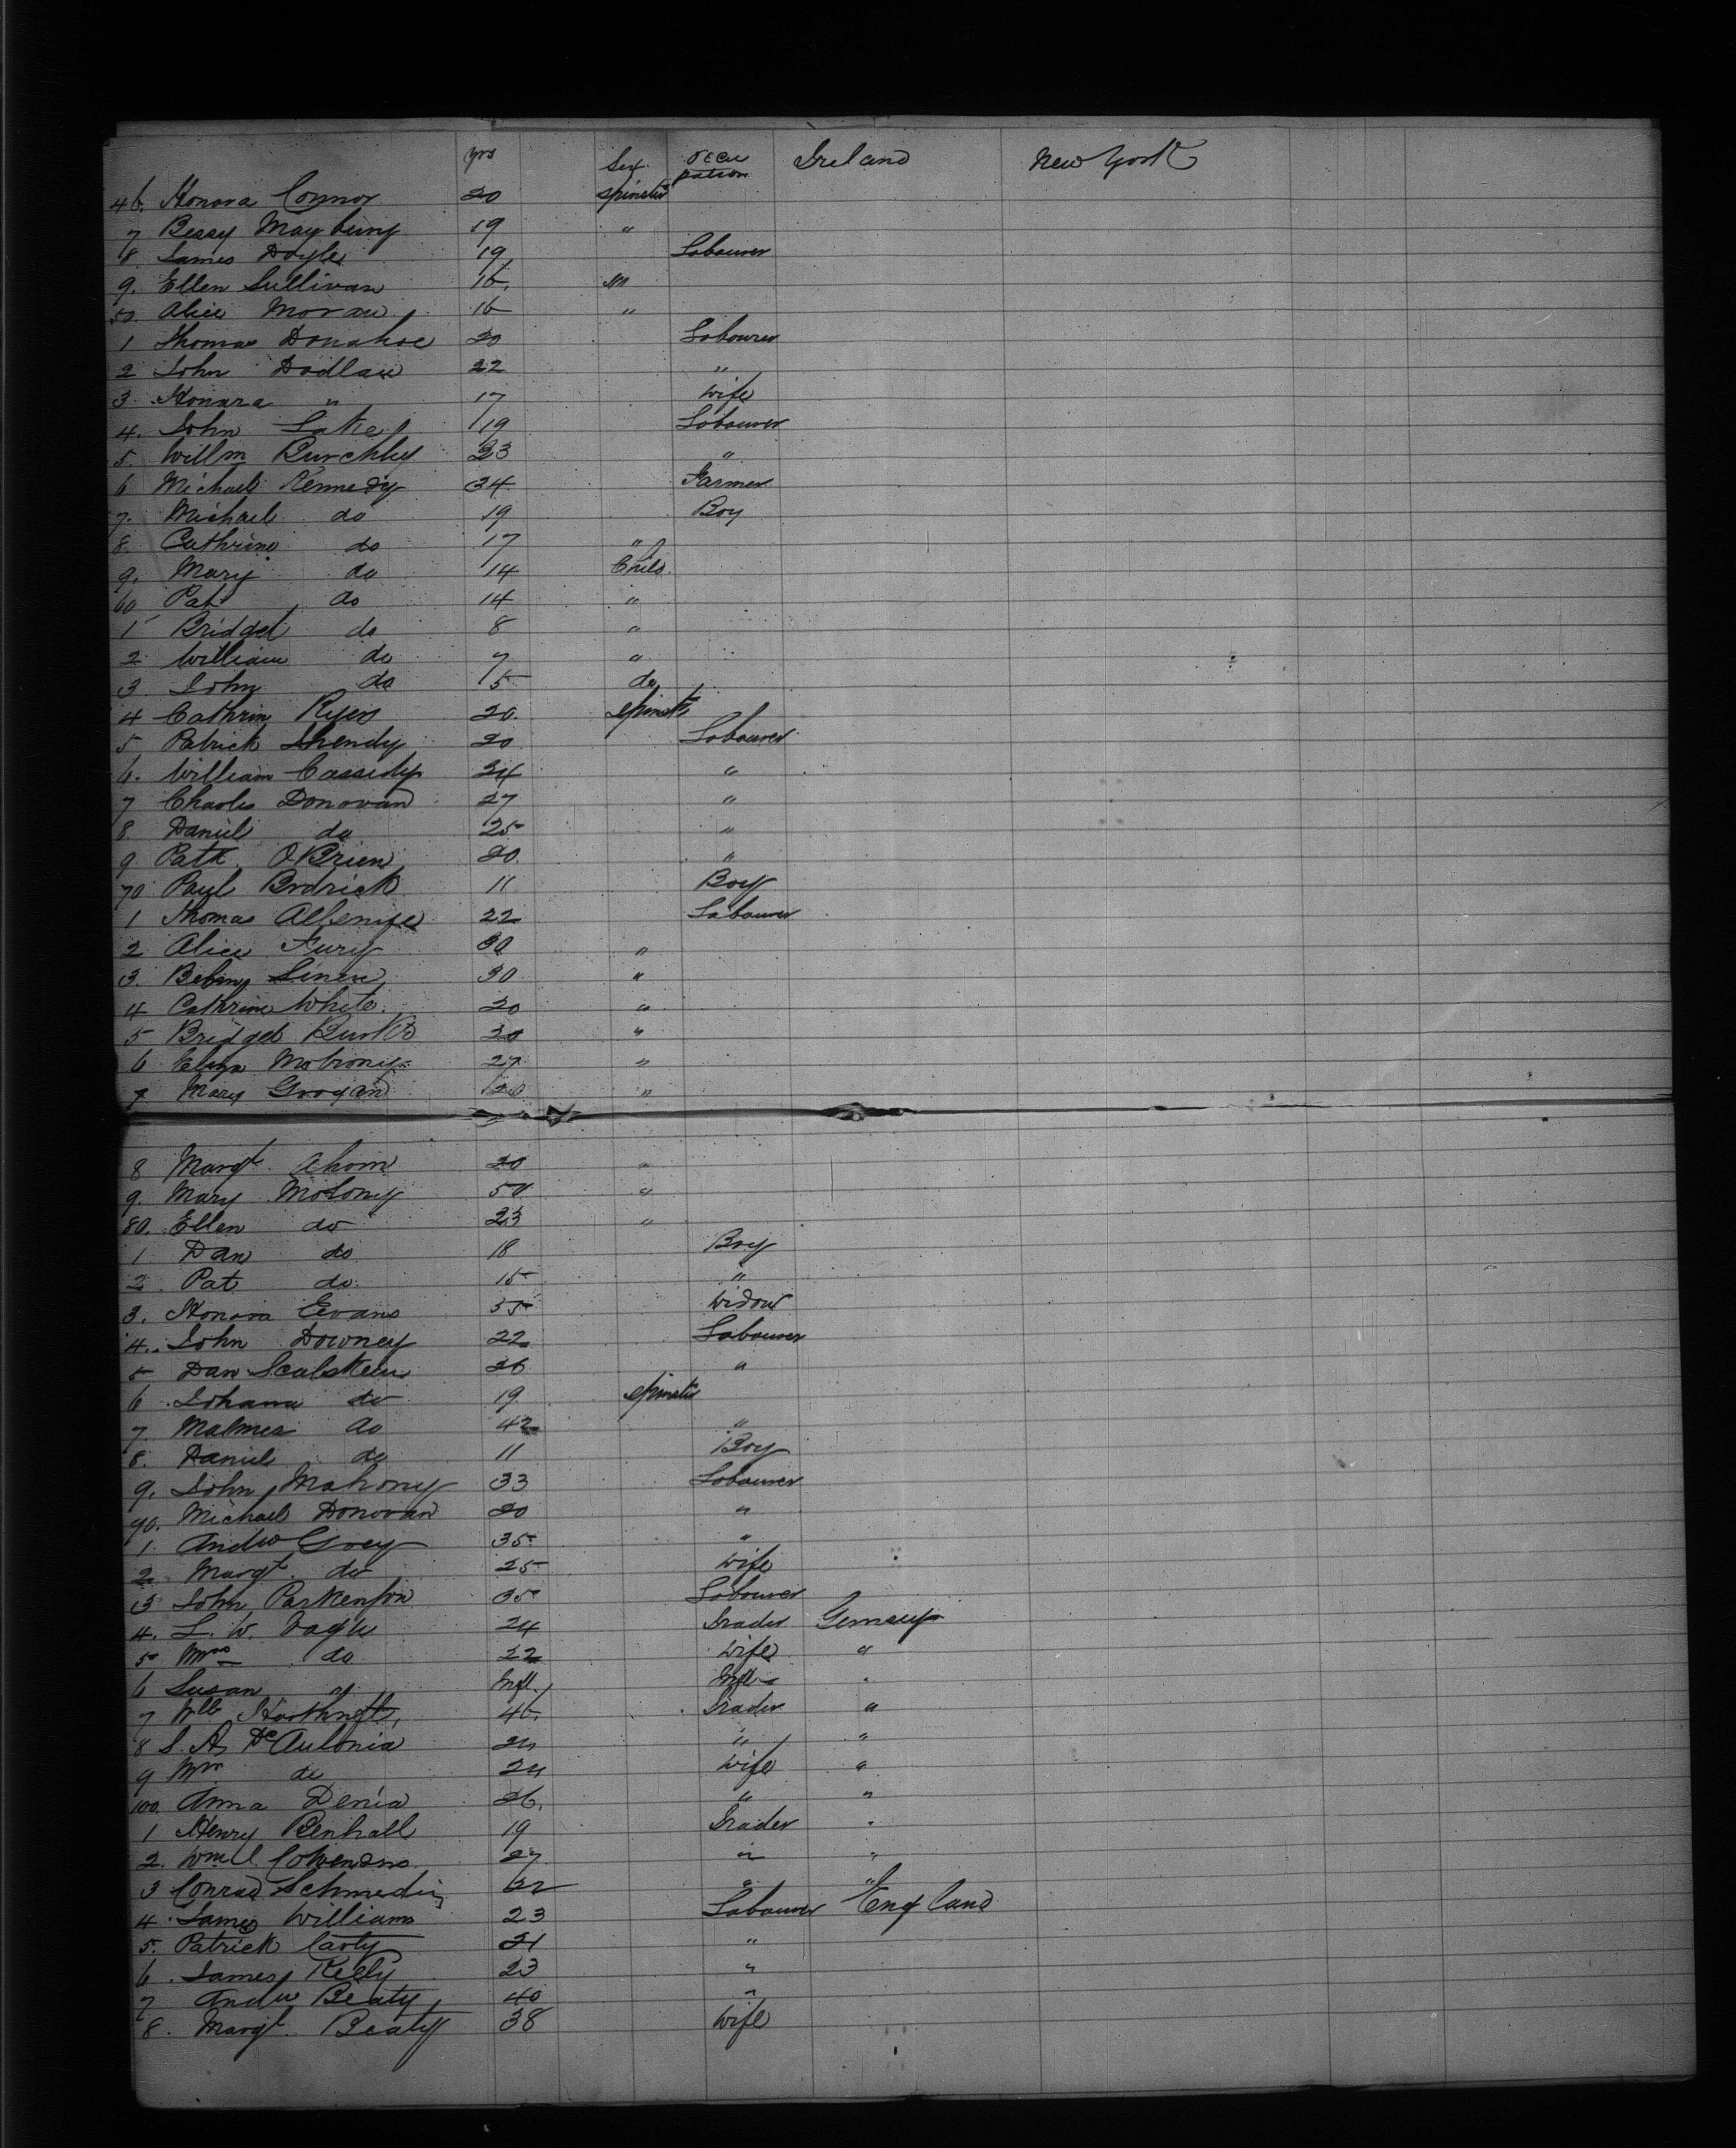 yrs Sex. Occu pation Ireland New York
46. Honora Connor 20 spinster
7 Bessy Mayberry 19 "
8. James Doyle 19 Labourer
9. Ellen Sullivan 16. "
50. Alice Moran 16 "
1 Thomas Donahoe 20 Labourer
2 John 22 "
3. Honara " 17 Wife
4. John 19 Labourer
5. Willm 23 "
6 Michael Kennedy 34 Farmer
7. Michael do 19 Boy
8. Cathrine do 17 "
9. Mary do 14 Child
60 Pat do 14 "
1 Bridget do 8 "
2 William do 7 "
3. John do 5 do
4 Cathrin 20. spinstr
5 Patrick 20 Labourer
6. William Cassidy 24 "
7 Charles Donovan 27 "
8. Daniel do 25 "
9 Patk O'Brien 20. "
70 Paul Brdrick 11 Boy
1 Thomas 22 Labourer
2 Alice Fury 30 "
3. 30 "
4 Cathrine White. 20 "
5 Bridget Burke 20 "
6 Eliza 27 "
7 Mary Grogan 20 "
8 Margt. Ahorn 20 "
9. Mary Molony 50 "
80. Ellen do 23 "
1 Dan do 18 Boy
2 Pat do 15 "
3. Honora Evans 55 Widow
4. John Downey 22 Labourer
5 Dan 26 "
6 Johanna do 19 spinster
7. do 42 "
8. Daniel do 11 Boy
9. John Mahony 33 Labourer
90. Michael Donovan 20 "
1. Andw Grey 35 "
2 Margt. do 25 Wife
3 John Parkenson 35 Labourer
4. L. W. 24 Trader
5 Mrs do 22 Wife "
6 Susan " Inft. Inft "
7 46. Trader "
8 24 " "
9 Mrs do 24 Wife "
100. Anna Denia 26. " "
1 Henry Benhall 19 Trader "
2. 27. " "
3 Conrad " "
4. James Williams 23 Labourer England
5. Patrick Carty 21 "
6. James Kelly 23 "
7 Andw Beaty 40 "
8. Margt. Beaty 38 Wife